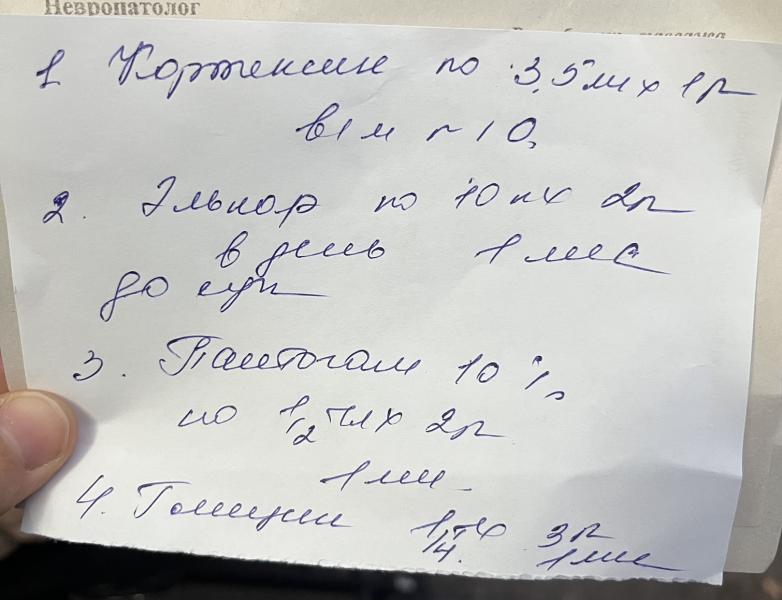 Невропатолог
1. Кортексин по 3,5 мл х 1 р
в/м № 10,
2. Элькар по 10 к х 2 р
в день 1 мес
до
3. Пантогам 10 %
по 1/2 ч л х 2 р
1 м
4. Глицин 1/4 т х 3 р
1 мес